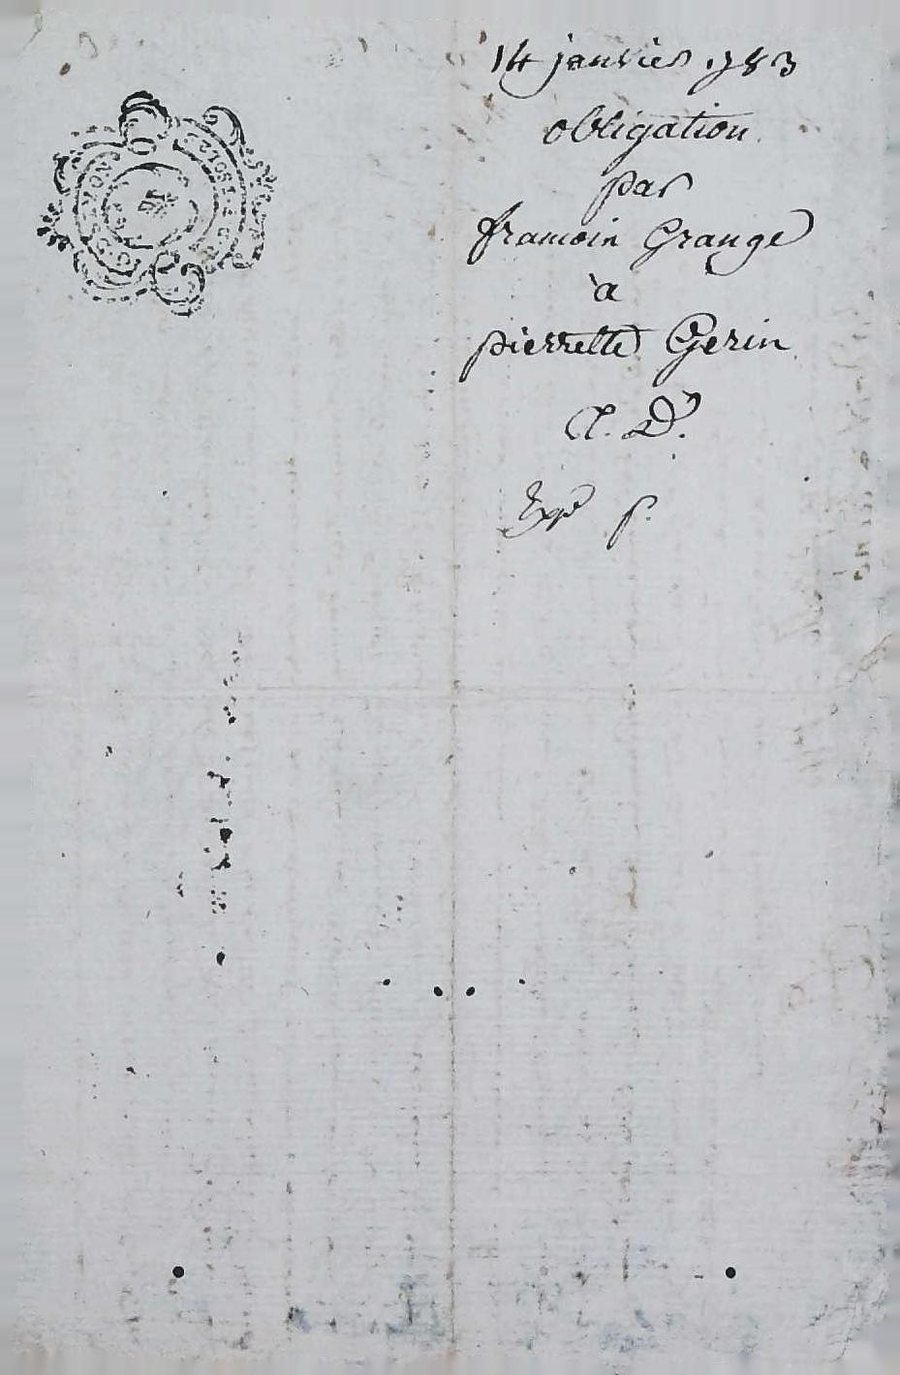 14 janvier 1783
obligation
par
francoin Grange
à
pierrette Gerin
Cl. D.
Exp. p.